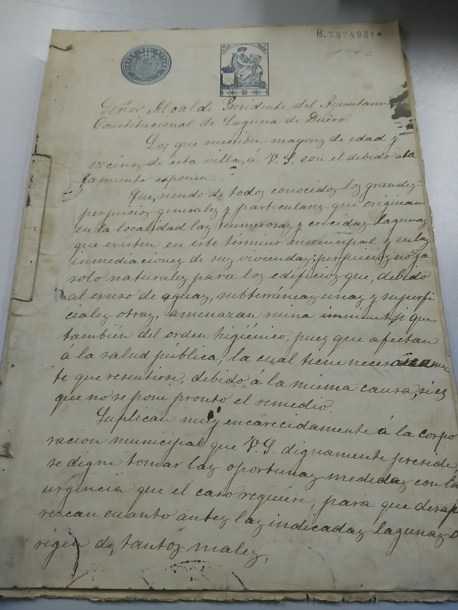 B.7974931*
Señor Alcalde Presidente del Ayuntam
Constitucional de Laguna de Duero.
Los que suscriben mayores de edad y
vecinos de esta villa, á V. S. con el debido aca
tamiento exponen:
Que, siendo de todos conocidos los grandes
perjuicios generales y particulares que originan
en la localidad las numerosas y crecidas lagunas
que existen en este termino municipal y en las
inmediaciones de sus viviendas; perjuicios no ya
solo naturales para los edificios que, debido
al exceso de aguas, subterráneas unas y superfi
ciales otras, amenazan ruina inminente que
tambien del orden higiénico, pues que afectan
á la salud pública, la cual tiene necesariamen
te que resentirse, debido á la misma causa, si es
que no se pone pronto el remedio.
Suplican muy encarecidamente á la corpo
racion municipal que V. S. dignamente preside,
se digne tomar las oportunas medidas con la
urgencia que el caso requiere, para que desapa
rezcan cuanto antes las indicadas lagunas, o
rigen de tantos males.